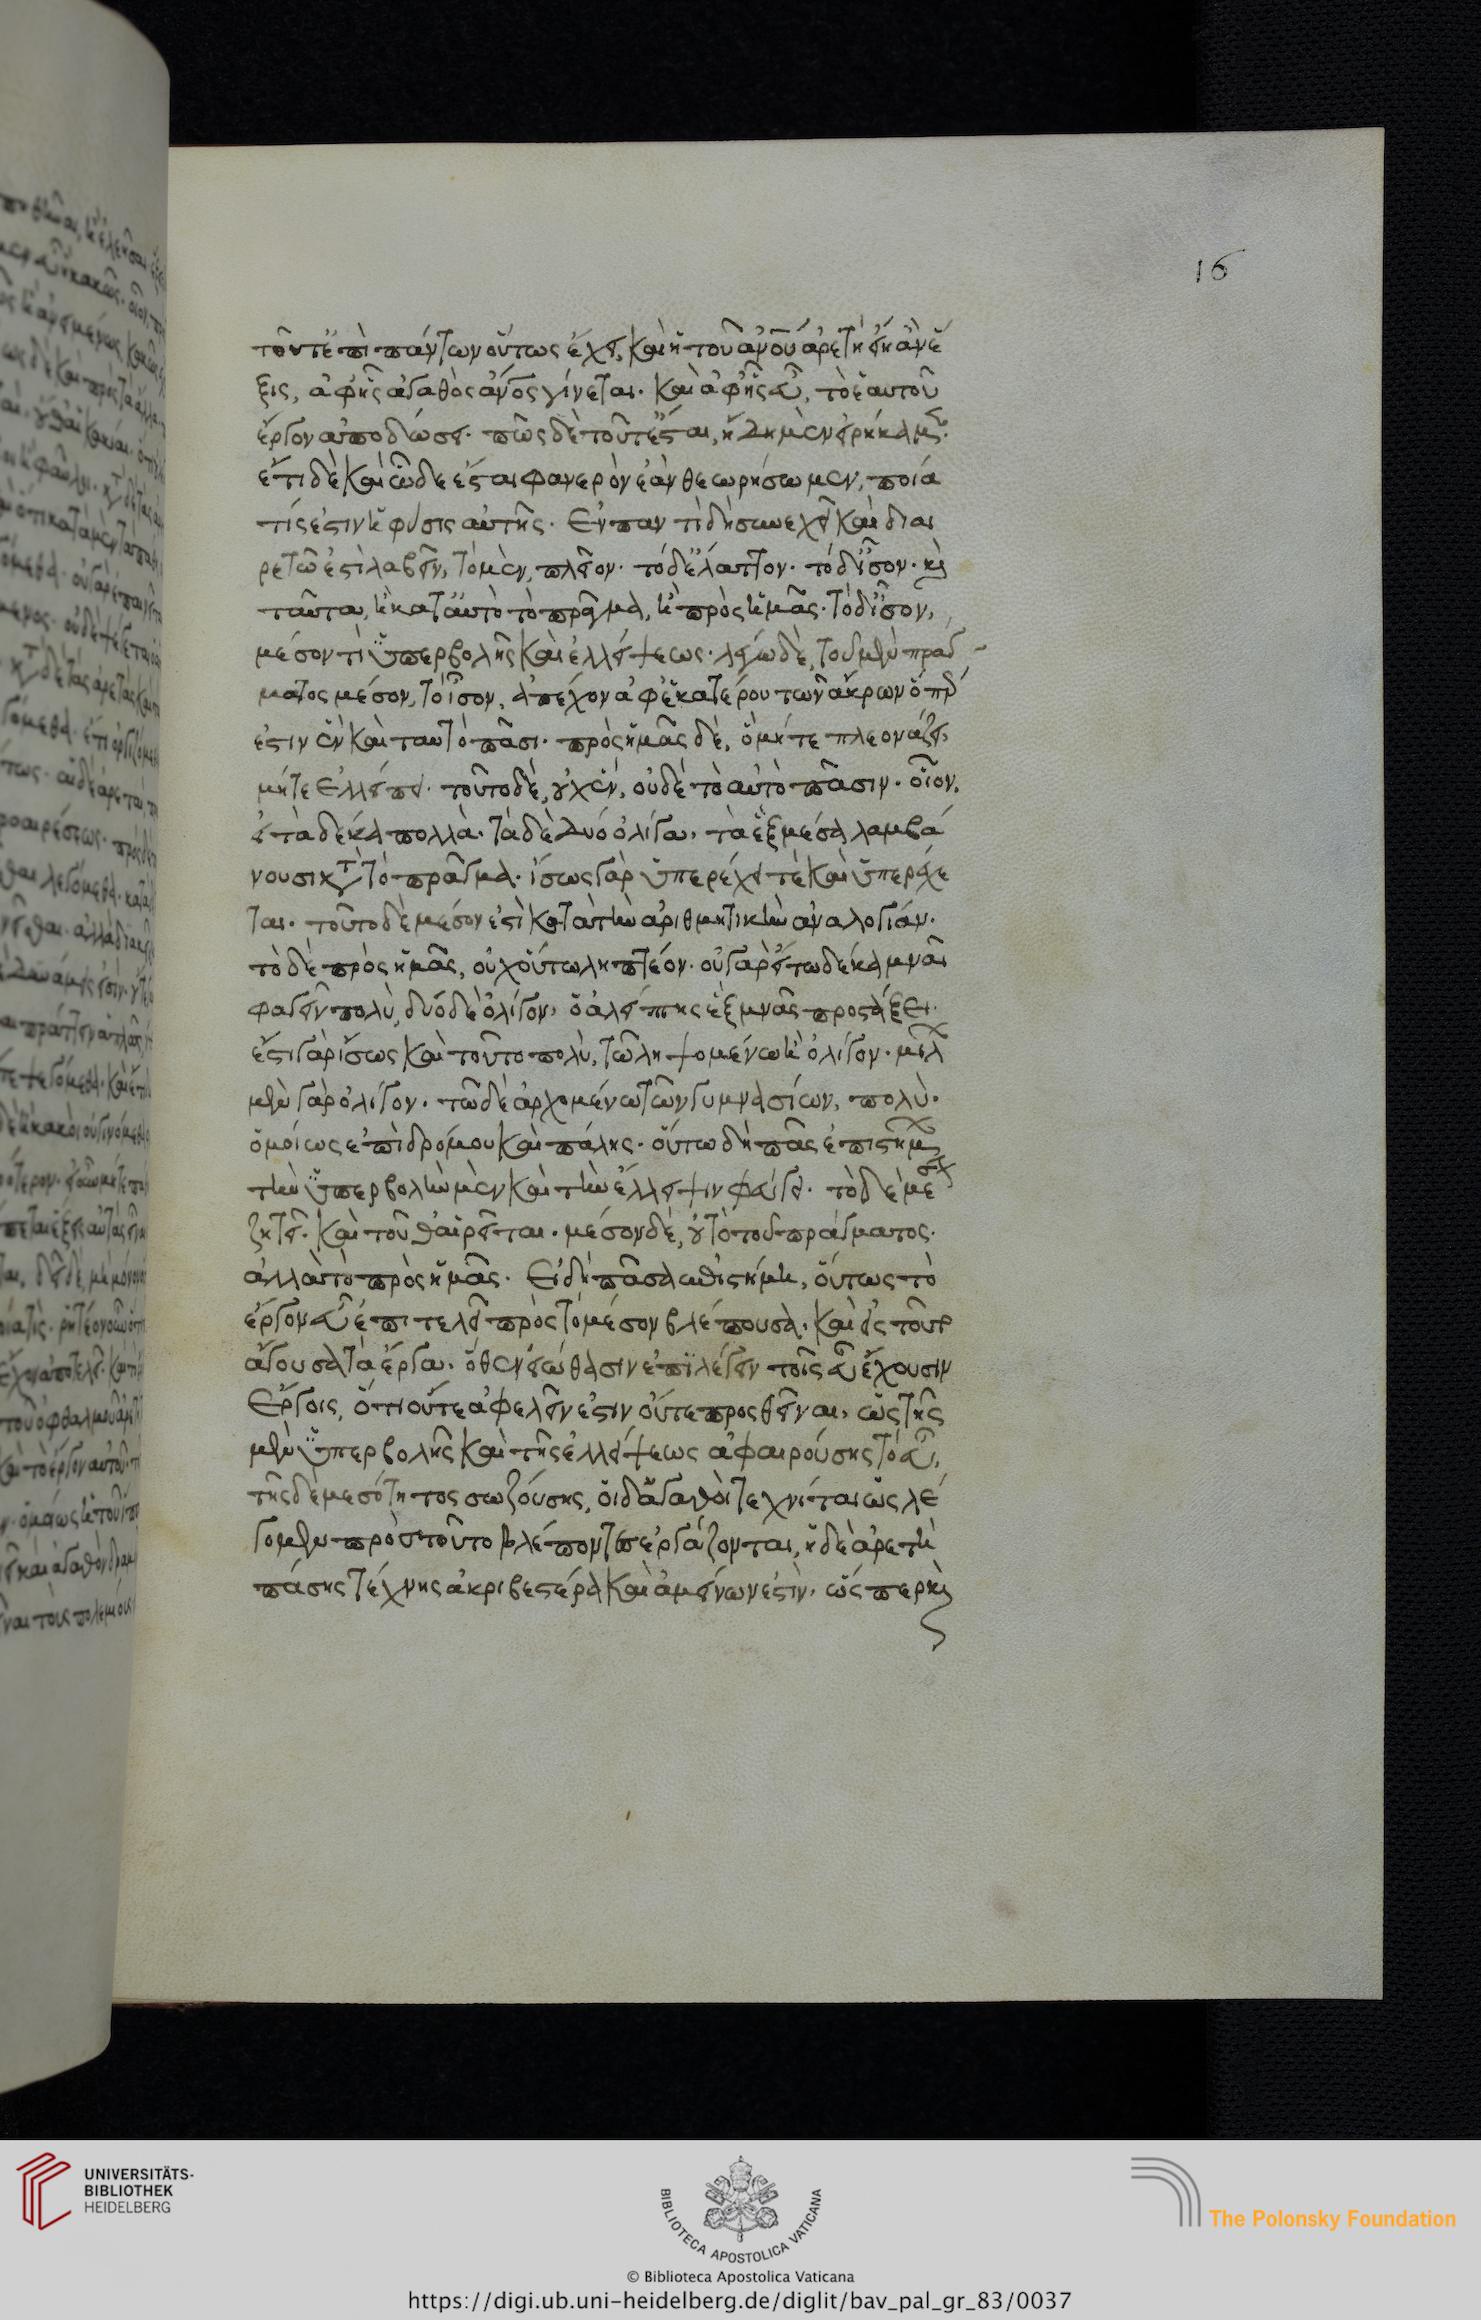 16
τοῦντ' ἐπὶ πάντων οὕτως ἔχει, καὶ ἡ τοῦ ἀνου ἀρετὴ εἴη ἂν ἕ
ξις, ἀφ' ἧς ἀγαθὸς ἄνος γίνεται. καὶ ἀφ' ἧς εὖ, τὸ ἑαυτοῦ
ἔργον ἀποδώσει. πῶς δὲ τοῦτ' ἔσται, ἤδη μὲν εἰρήκαμεν.
ἔτι δὲ καὶ ὧδε ἔσται φανερὸν ἐὰν θεωρήσωμεν, ποία
τίς ἐστιν ἡ φύσις αὐτῆς. Εν παντὶ δὴ συνεχεῖ καὶ διαι
ρετῶ ἐστὶ λαβεῖν, τὸ μὲν, πλεῖον. τὸ δ' ἔλαττον. τὸ δ' ἴσον. καὶ
ταῦτα, ἢ κατ' αὐτὸ τὸ πρᾶγμα, ἢ πρὸς ἡμᾶς. τὸ δ' ἴσον,
μέσον τὶ ὑπερβολῆς καὶ ἐλλείψεως. λέγω δὲ, τοῦ μὲν πράγ
ματος μέσον, τὸ ἴσον, ἀπέχον ἀφ' ἑκατέρου τῶν ἄκρων ὅπερ
ἐστιν ἓν καὶ ταυτὸ πᾶσι. πρὸς ἡμᾶς δὲ, ὃ μήτε πλεονάζει,
μήτε Ελλείπει. τοῦτο δὲ, οὐχ ἓν, οὐδὲ τὸ αὐτὸ πᾶσιν. οἷον,
εἰ τὰ δέκα πολλὰ. τὰ δὲ δυό ὀλίγα, τὰ ἓξ μέσα λαμβά
νουσι κατὰ τὸ πρᾶγμα. ἴσως γὰρ ὑπερέχει τὲ καὶ ὑπερέχε
ται. τοῦτο δὲ μέσον ἐστὶ κατὰ τὴν ἀριθμητικὴν ἀναλογίαν.
τὸ δὲ πρὸς ἡμᾶς, οὐχ οὕτω ληπτέον. οὐ γὰρ εἴ τω δέκα μναῖ
φαγεῖν πολὺ, δύο δὲ ὀλίγον, ὁ ἀλείπτης ἓξ μνᾶς προστάξει.
ἔστι γὰρ ἴσως καὶ τοῦτο πολὺ, τῶ ληψομένω ἢ ὀλίγον. μίλ
μὲν γὰρ ὀλίγον. τῶ δὲ ἀρχομένω τῶν γυμνασίων, πολὺ.
ὁμοίως ἐπὶ δρόμου καὶ πάλης. οὕτω δὴ πᾶς ἐπιστήμων
τὴν ὑπερβολὴν μὲν καὶ τὴν ἔλλειψιν φεύγει. τὸ δὲ μέσον
ζητεῖ. καὶ τοῦθ' αἱρεῖται. μέσον δὲ, οὐ τὸ τοῦ πράγματος.
ἀλλὰ τὸ πρὸς ἡμᾶς. Εἰ δὴ πᾶσα ἐπιστήμη, οὕτως τὸ
ἔργον εὖ ἐπιτελεῖ πρὸς τὸ μέσον βλέπουσα. καὶ εἰς τοῦτο
ἄγουσα τὰ ἔργα. ὅθεν εἰώθασιν ἐπιλέγειν τοῖς εὖ ἔχουσιν
Εργοις, ὅτι οὔτε ἀφελεῖν ἐστιν οὔτε προσθεῖναι, ὡς τῆς
μὲν ὑπερβολῆς καὶ τῆς ἐλλείψεως ἀφαιρούσης τὸ εὖ,
τῆς δὲ μεσότητος σωζούσης, οἱ δ' ἀγαθοὶ τεχνίται ὡς λέ
γομεν πρὸς τοῦτο βλέποντες ἐργάζονται, ἡ δὲ ἀρετὴ
πάσης τέχνης ἀκριβεστέρα καὶ ἀμείνων ἐστὶν, ὥσπερ καὶ
UNIVERSITÄTS-
BIBLIOTHEK
HEIDELBERG
BIBLIOTECA APOSTOLICA VATICANA
The Polonsky Foundation
© Biblioteca Apostolica Vaticana
https://digi.ub.uni-heidelberg.de/diglit/bav_pal_gr_83/0037